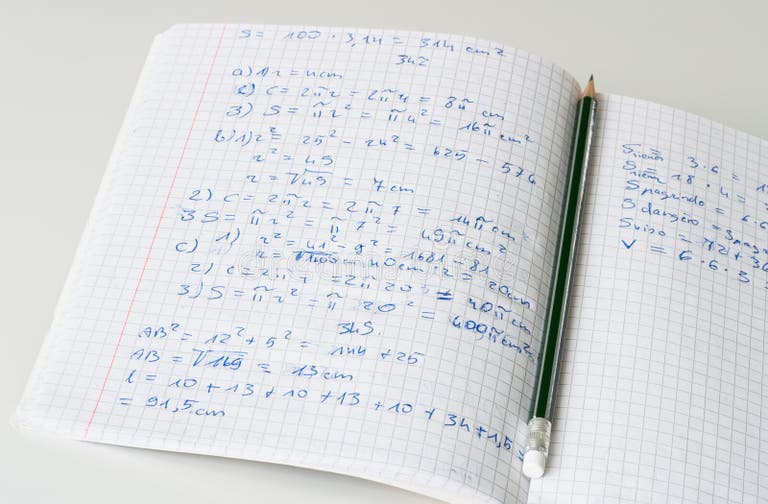 S = 100 · 3,14 = 314 cm²
342
a) 1) r = 4cm
2) C = 2πr = 2π4 = 8π cm
3) S = πr² = π4² = 16π cm²
b) 1) r² = 25² - 24² = 625 - 576
r² = 49
r = √49 = 7cm
2) C = 2πr = 2π7 = 14π cm
3 S = πr² = π7² = 49π cm²
c) 1) r² = 41² - 9² = 1681 - 81
r = √1600 = 40cm : 2 = 20cm
2) C = 2πr = 2π20 = 40π cm
3) S = πr² = π20² = 400π cm²
345.
AB² = 12² + 5² = 144 + 25
AB = √169 = 13cm
l = 10 + 13 + 10 + 13 + 10 + 34 + 1,5 =
= 91,5cm
3.6 =
18 · 4 =
= 6.6
=
= 72 + 36
V = 6.6.3